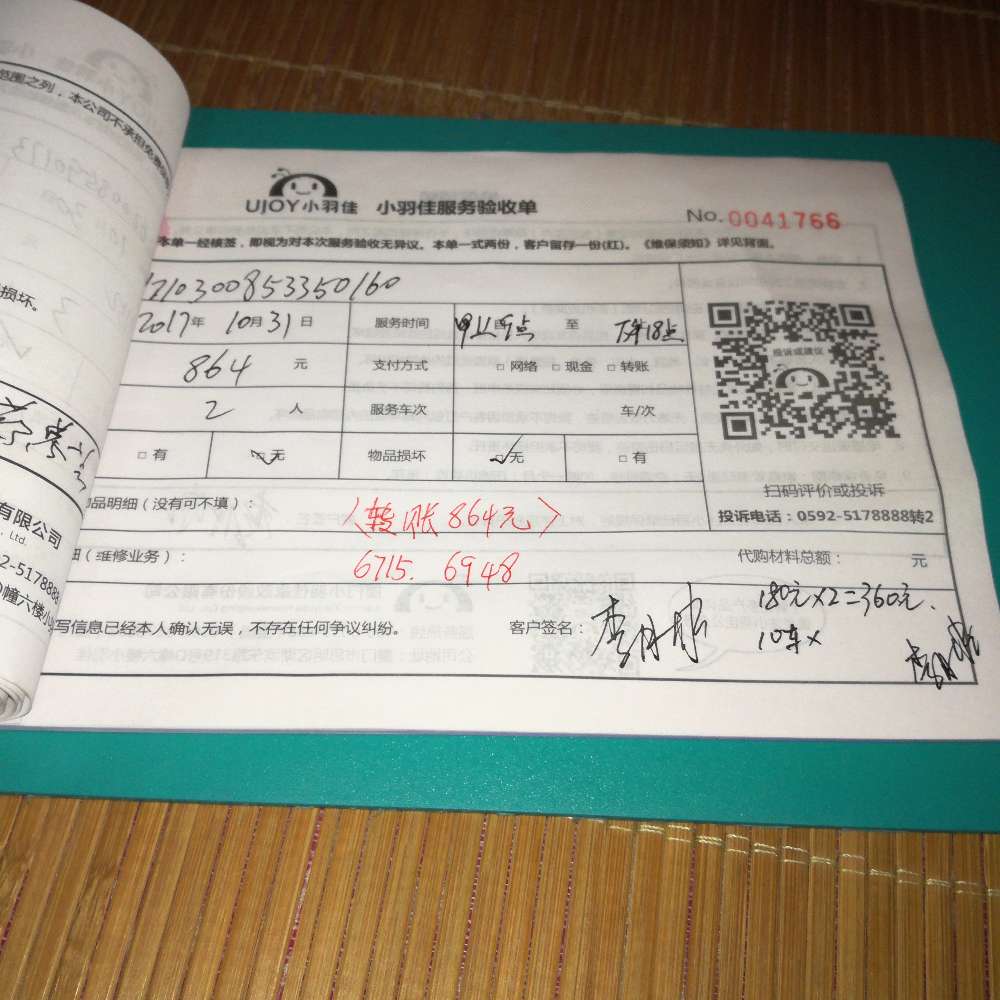 UJOY小羽佳 小羽佳服务验收单
No.0041766
本单一经核签，即视为对本次服务验收无异议。本单一式两份，客户留存一份(红)。《维保须知》详见背面。
210300853350160
2017年 10月31日 服务时间 早上9点 至 下午18点
864 元 支付方式 □网络 □现金 □转账
2 人 服务车次 车/次
□有 □无 物品损坏 □无 □有
投诉或建议
扫码评价或投诉
投诉电话：0592-5178888转2
品明细（没有可不填）：
(转账864元)
细（维修业务）：
6715. 6948
代购材料总额： 元
写信息已经本人确认无误，不存在任何争议纠纷。 客户签名：
180元×2=360元.
范围之列，本公司不承担免费
损坏。
有限公司
, Ltd.
2-5178888
D幢六楼小